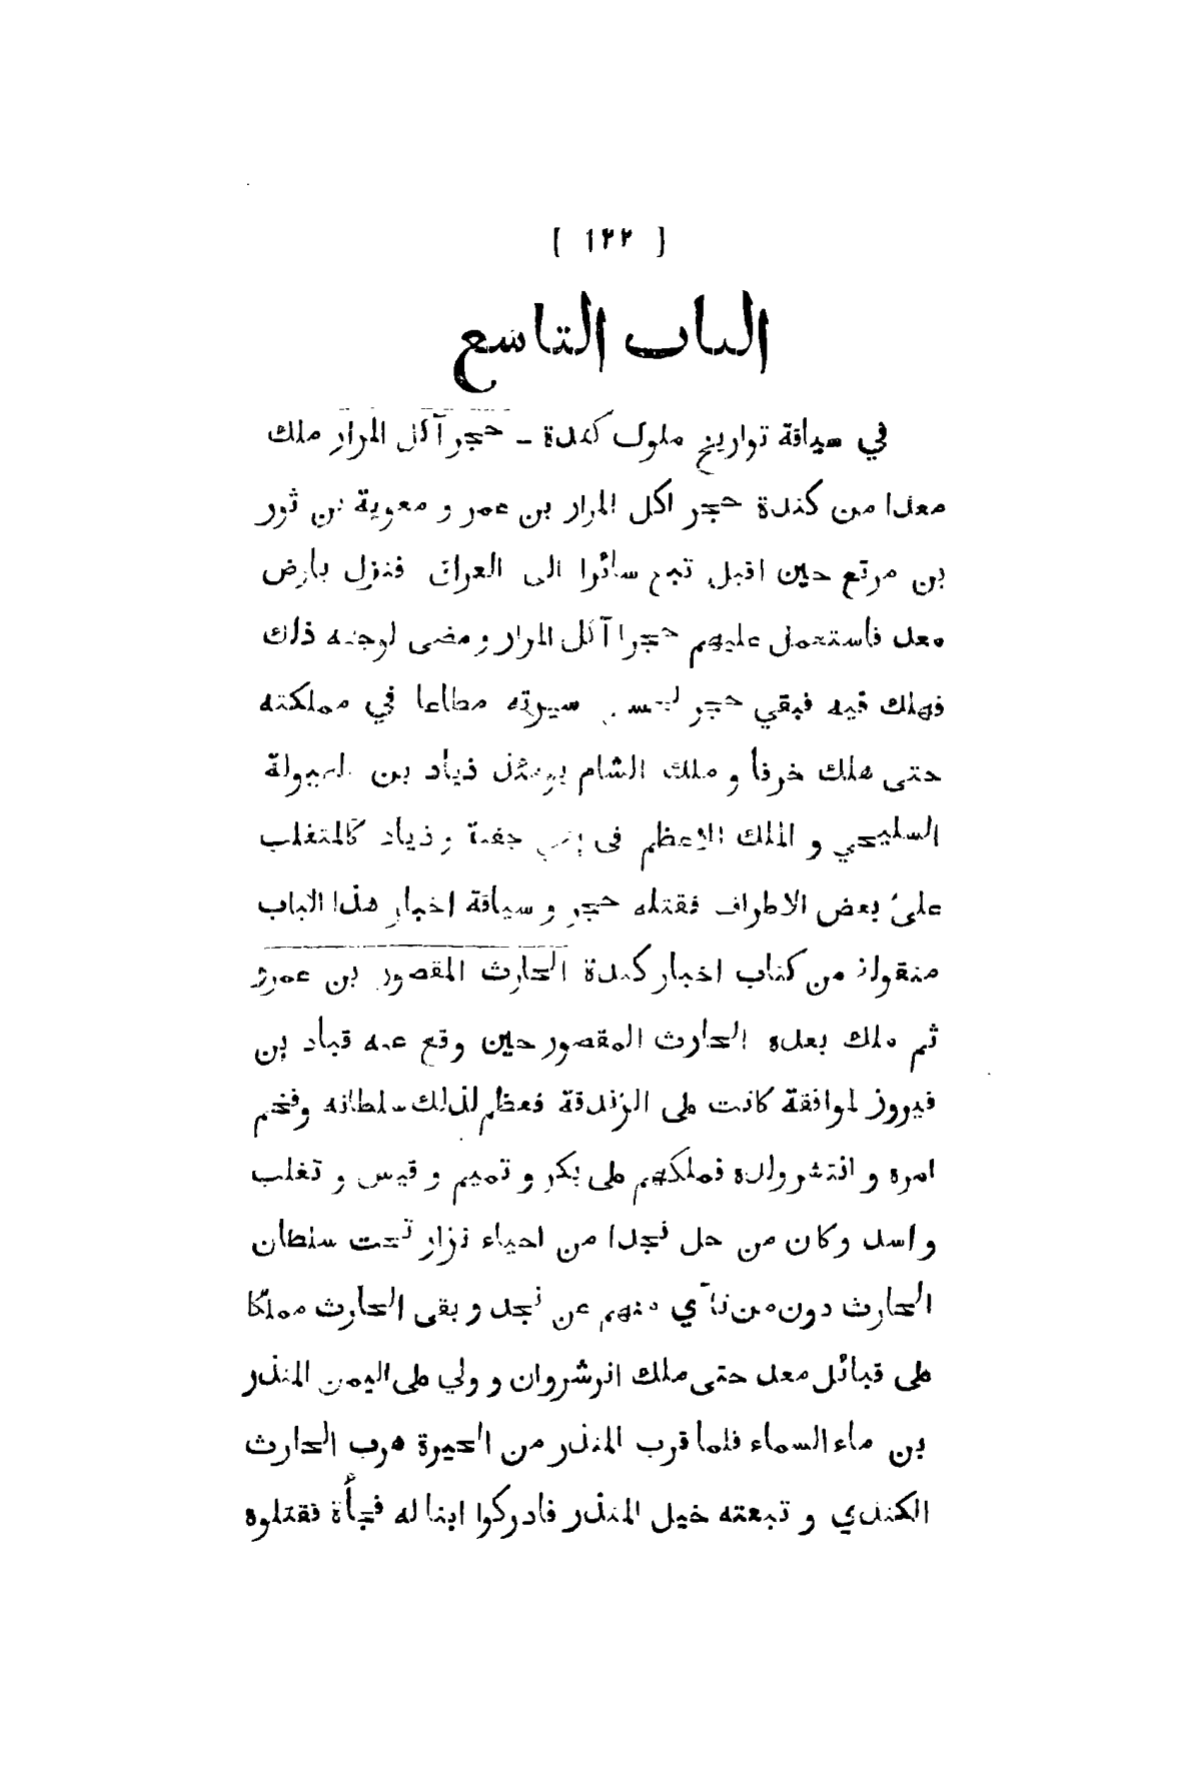 [ ١٢٢ ]
الباب التاسع
في سياقة تواريخ ملوك كندة ـ حجر آكل المرار ملك
معدا من كندة حجر اكل المرار بن عمر و معوية بن ثور
بن مرتع حين اقبل تبع سائرا الى العراق فنزل بارض
معد فاستعمل عليهم حجرا آكل المرار و مضى لوجهه ذلك
فهلك فيه فبقي حجر لحسن سيرته مطاعا في مملكته
حتى هلك خرفا و ملك الشام يومئذ ذياد بن الهبولة
السليحي و الملك الاعظم فى بني جفنة و ذياد كالمتغلب
على بعض الاطراف فقتله حجر و سياقة اخبار هذا الباب
منقولة من كتاب اخبار كندة الحارث المقصور بن عمرو
ثم ملك بعده الحارث المقصور حين وقع عنه قباد بن
فيروز لموافقة كانت على الزندقة فعظم لذلك سلطانه وفخم
امره و انتشر ولده فملكهم على بكر و تميم و قيس و تغلب
و اسد و كان من حل نجدا من احياء نزار تحت سلطان
الحارث دون من نآي منهم عن نجد و بقى الحارث مملكا
على قبائل معد حتى ملك انوشروان و ولي على اليمن المنذر
بن ماء السماء فلما قرب المنذر من الحيرة هرب الحارث
الكندي و تبعته خيل المنذر فادركوا ابنا له فجأة فقتلوه